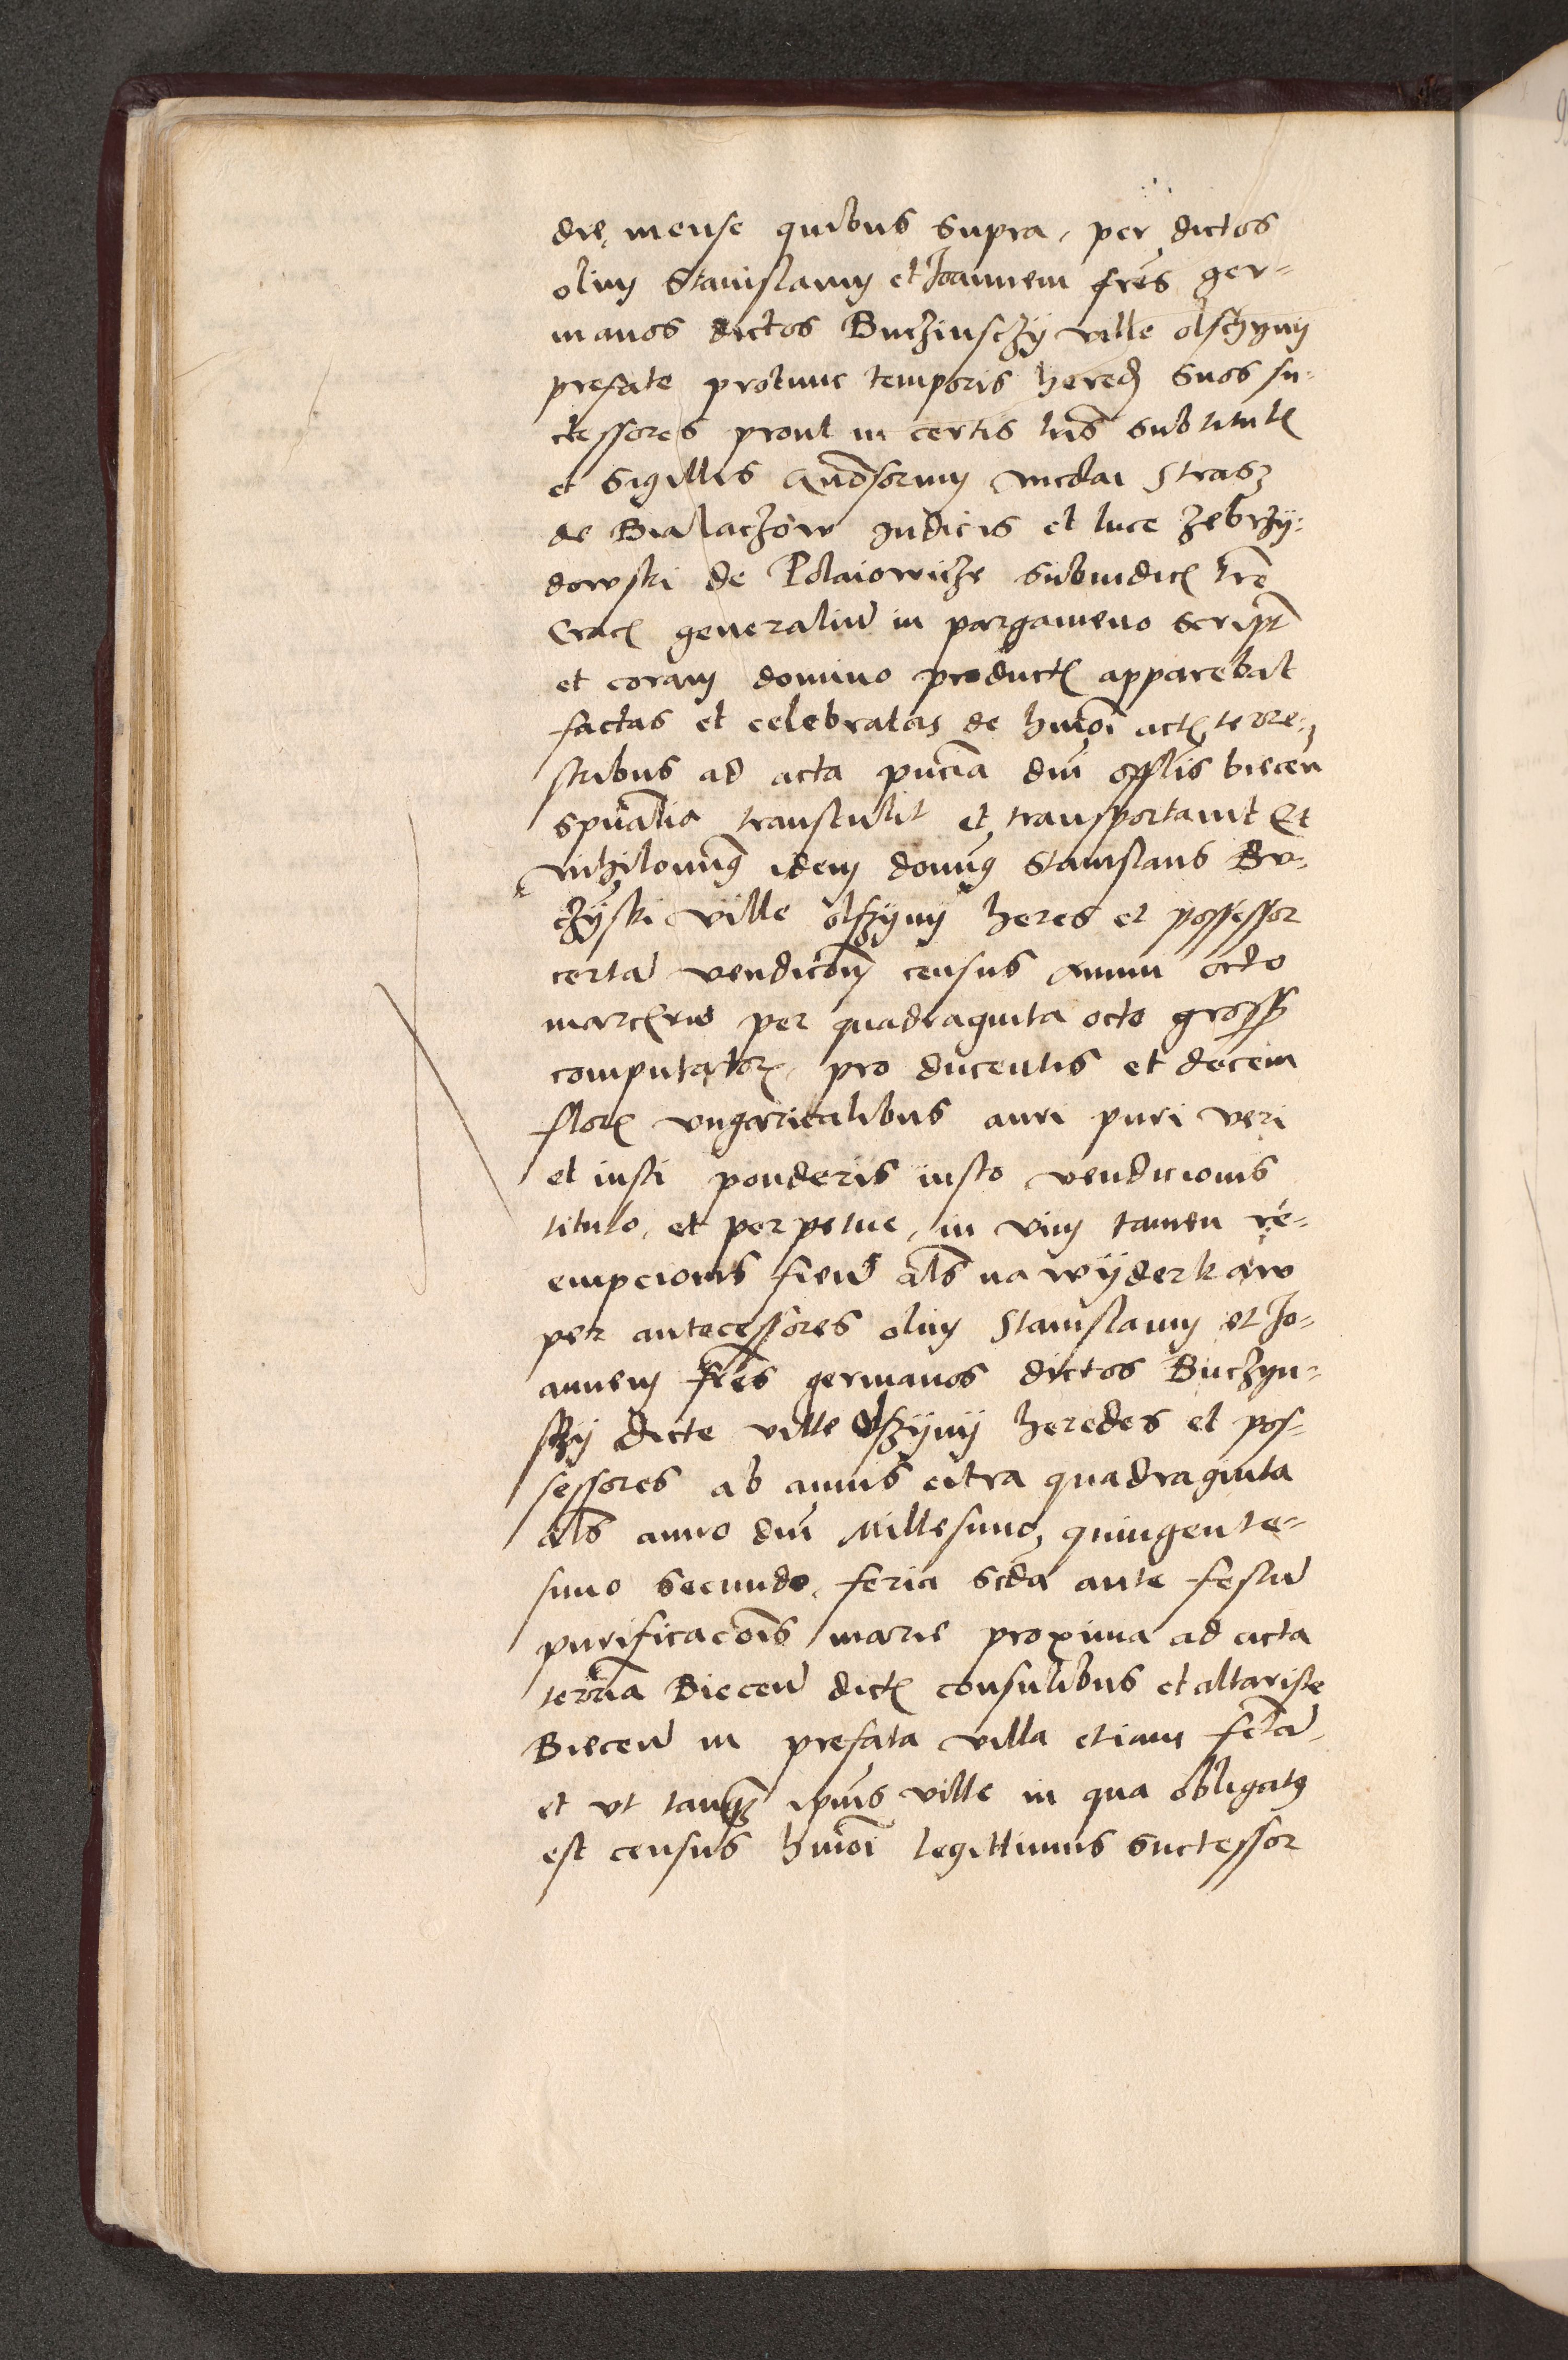 die, mense quibus supra, per dictos
olim Stanislaum et Joannem fres ger=
manos dictos Buchinschy ville olschyny
prefate protunc temporis hered suos su=
cessores prout in certis lris sub titul
et sigillis Strasz
de Bialaczow Judicis et luce Zebrzy=
dowski de Polaiowicze subiudic tre
Crac generaliu in pargameno script
et coram domino product apparebat
factas et celebratas de hmoi act, terre=
stribus ad acta pncia dni offlis biecen
spualia transtulit et transportauit Et
nihilomis idem domus Stanislaus Bu=
czyski ville olszyny heres et possessor
certa vendicoem census annui octo
marcaru per quadraginta octo gross
computator pro ducentis et decem
flor vngaricalibus auri puri veri
et iusti ponderis iusto vendicionis
titulo, et perpetue, in vim tamen re=
empcionis fiend als na wyderkaw
per antecessores olim Stanislaum et Jo=
annem fres germanos dictos Buczyn=
sky dicte ville olszyny heredes et pos=
sessores ab annis citra quadraginta
als anno dni Millesimo, quingente=
simo secundo, feria scda ante festu
purificacois marie proxima ad acta
terria Biecen dict consulibus et altariste
Biecen in prefata villa etiam fcta
et vt tamq ipius ville in qua obligatus
est census hmoi legittimus successor